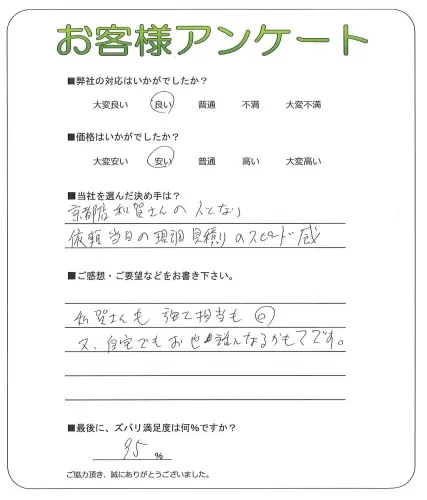 お客様アンケート
■弊社の対応はいかがでしたか？
大変良い 良い 普通 不満 大変不満
■価格はいかがでしたか？
大変安い 安い 普通 高い 大変高い
■当社を選んだ決め手は？
京都店 和賀さんの 人となり
依頼当日の現調見積りのスピード感
■ご感想・ご要望などをお書き下さい。
和賀さんも 担当も
又、自宅でもお世話になるかもです。
■最後に、ズバリ満足度は何％ですか？
95 ％
ご協力頂き、誠にありがとうございました。